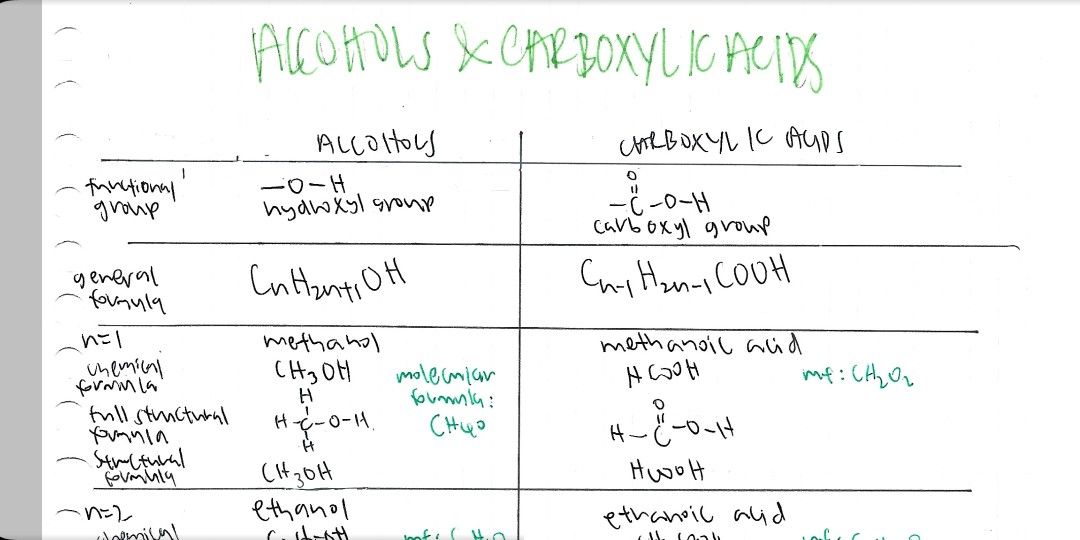 ALCOHOLS & CARBOXYLIC ACIDS
ALCOHOLS CARBOXYLIC ACIDS
functional group
—O—H
hydroxyl group
O
=
—C—O—H
carboxyl group
general formula
CnH2n+1OH
Cn-1H2n-1COOH
n=1
methanol
methanoic acid
chemical formula
CH3OH
molecular formula:
CH4O
HCOOH
mf: CH2O2
full structural formula
H
H-C-O-H
H
O
H-C-O-H
structural formula
CH3OH
HCOOH
n=2
ethanol
ethanoic acid
chemical